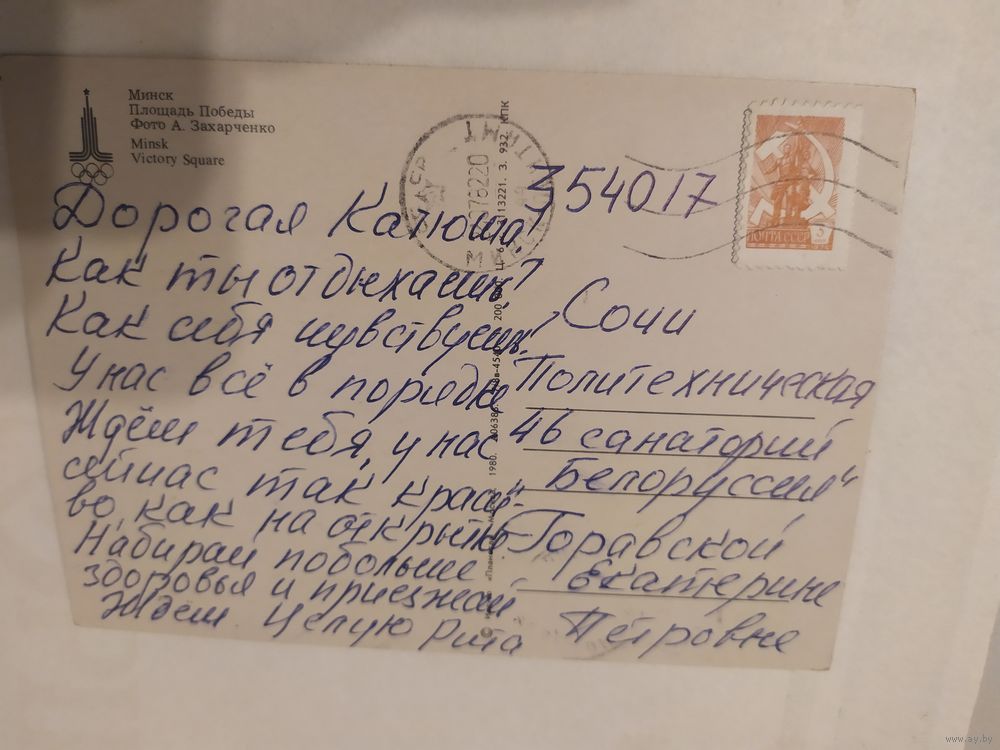 Минск
Площадь Победы
Фото А. Захарченко
Minsk
Victory Square
Дорогая Катюша!
Как ты отдыхаешь?
Как себя чувствуешь?
У нас всё в порядке
Ждём тебя, у нас
сейчас так краси-
во, как на открытке
Набирай побольше
здоровья и приезжай
Ждём Целую Рита
354017
Сочи
Политехническая
46 санаторий
"Белоруссия"
Горавской
Екатерине
Петровне
ПОЧТА СССР
www.ay.by